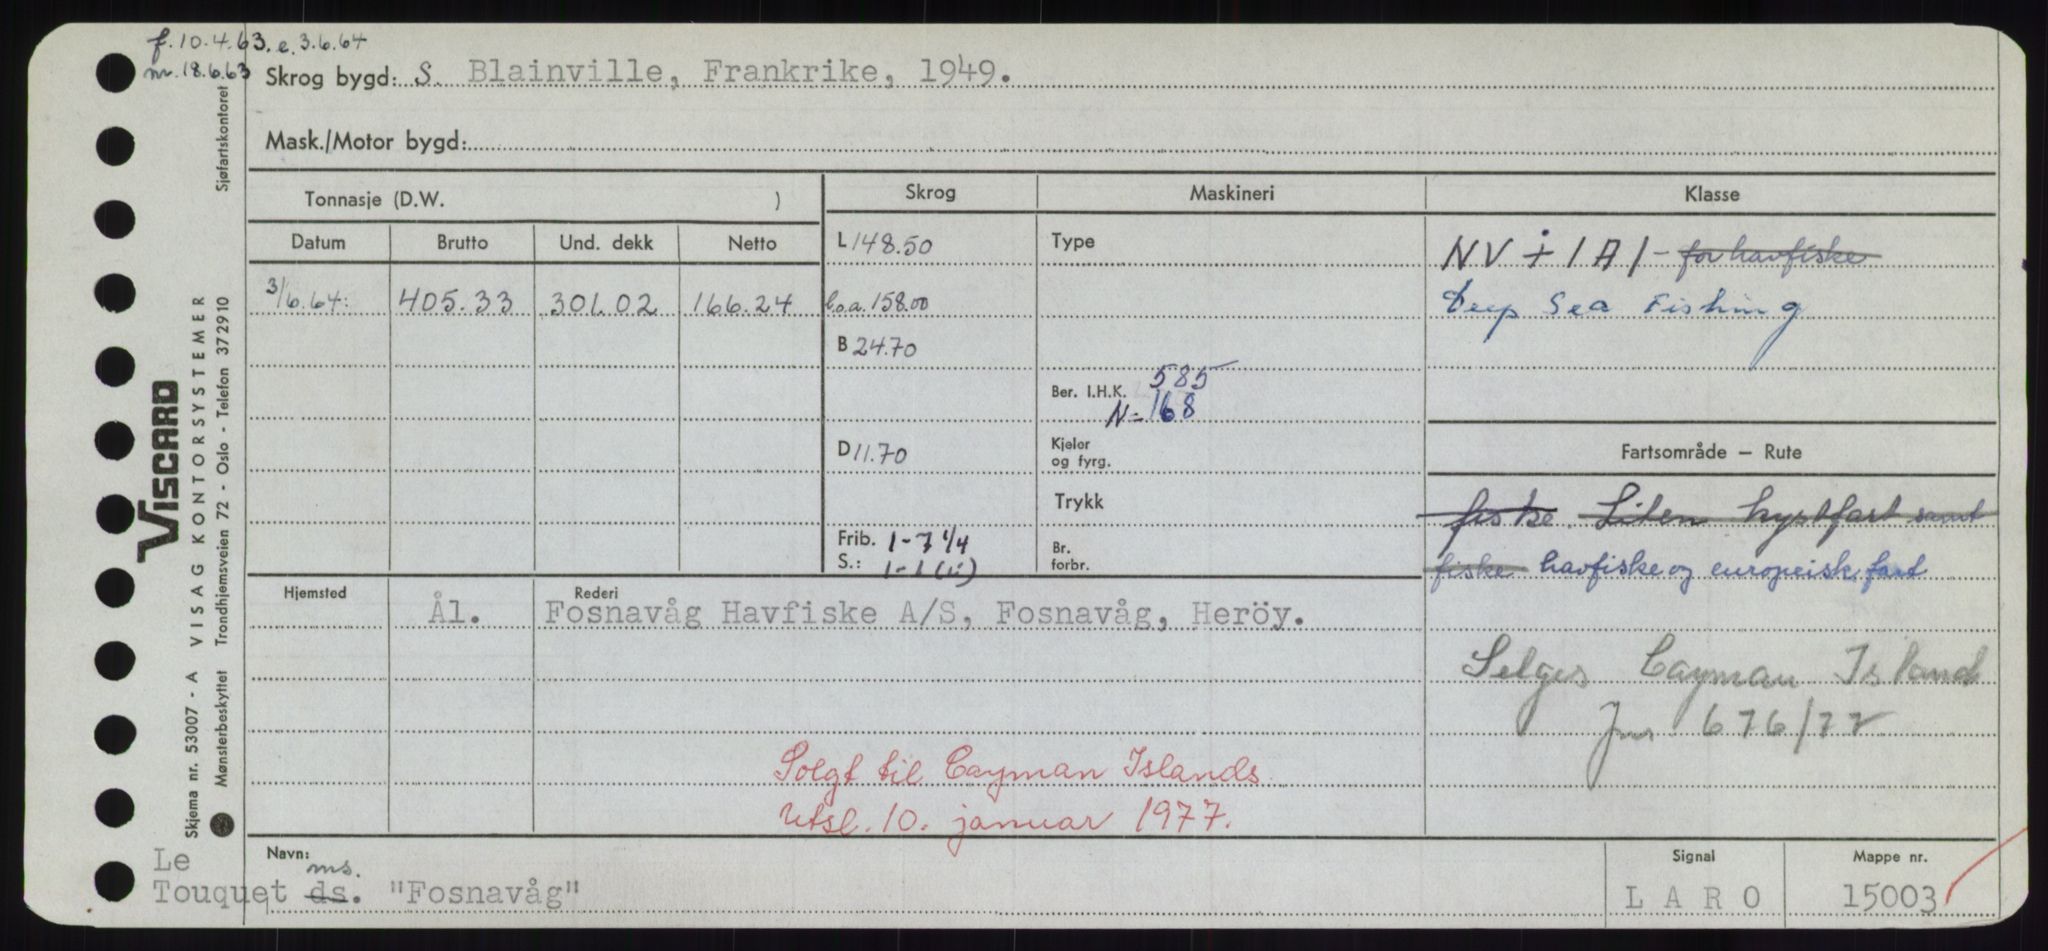 f. 10.4.63. e. 3.6.64
m. 18.6.63
Skrog bygd: S. Blainville, Frankrike, 1949.
Mask./Motor bygd:
Tonnasje (D.W. )
Skrog
Maskineri
Klasse
Datum Brutto Und. dekk Netto
L 148.50
Type
NV + 1A1 - for havfiske
3/6.64: 405.33 301.02 166.24
l.o.a. 158.00
Deep Sea Fishing
B 24.70
Ber. I.H.K. 585
N= 168
D 11.70
Kjeler
og fyrg.
Fartsområde — Rute
Trykk
fiske. Liten kystfart samt
Frib. 1-7 1/4
S.: 1-1 (v)
Br.
forbr.
fiske havfiske og europeisk fart
Hjemsted Ål.
Rederi
Fosnavåg Havfiske A/S, Fosnavåg, Heröy.
Selges Cayman Island
Jnr 676/77
Solgt til Cayman Islands
Utsl. 10. januar 1977.
Navn:
Le
Touquet
ms.
ds. "Fosnavåg"
Signal
L A R O
Mappe nr.
15003
VISCARD
Skjema nr. 53007 - A VISAG KONTORSYSTEMER
Mønsterbeskyttet Trondhjemsveien 72 - Oslo - Telefon 372910 Sjøfartskontoret